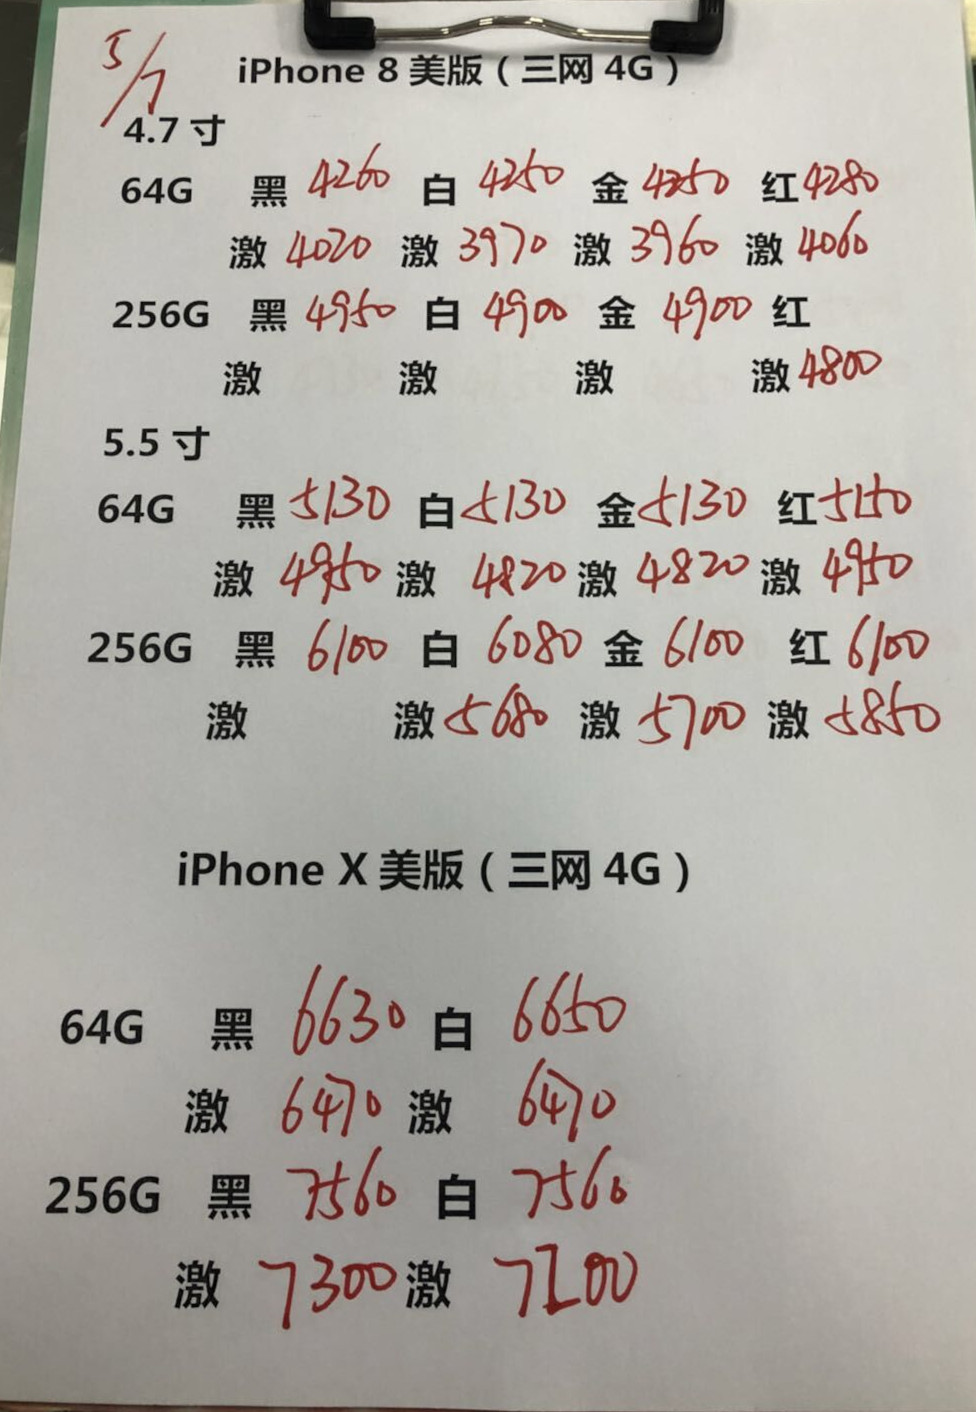 5/7
iPhone 8 美版（三网 4G）
4.7 寸
64G 黑 4260 白 4250 金 4250 红 4280
激 4020 激 3970 激 3960 激 4060
256G 黑 4950 白 4900 金 4900 红
激 激 激 激 4800
5.5 寸
64G 黑 5130 白 5130 金 5130 红 5150
激 4950 激 4820 激 4820 激 4950
256G 黑 6100 白 6080 金 6100 红 6100
激 激 5680 激 5700 激 5850
iPhone X 美版（三网 4G）
64G 黑 6630 白 6650
激 6470 激 6470
256G 黑 7560 白 7560
激 7300 激